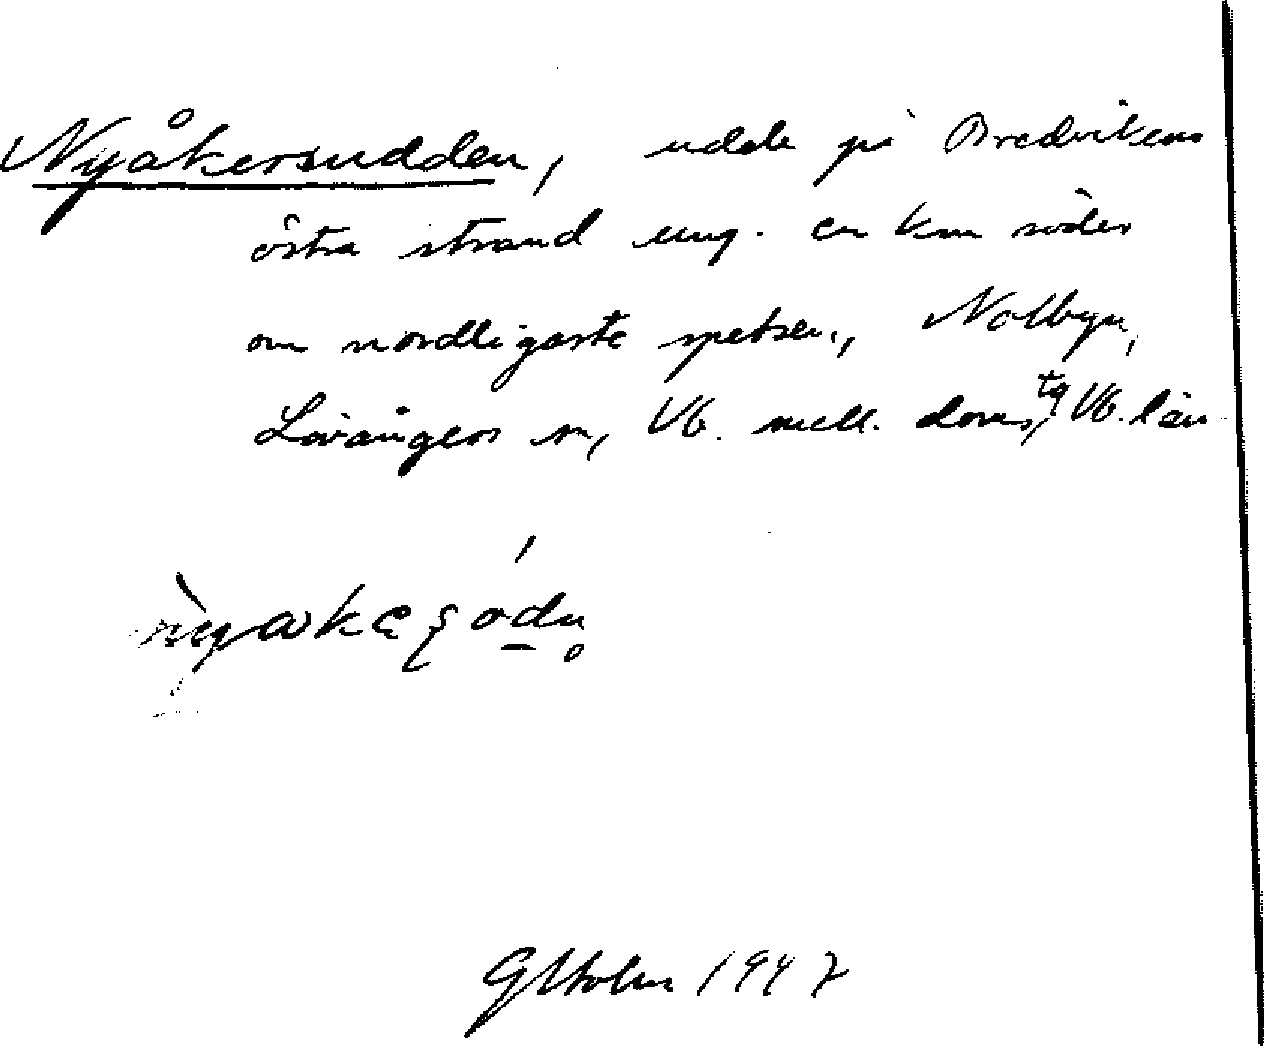 Nyåkersudden, udde på Bredvikens
östra strand ung. en km söder
om nordligaste spetsen, Nolbyn,
Lövångers sn, Vb. mell. doms. tg Vb. län
GHolm 1947